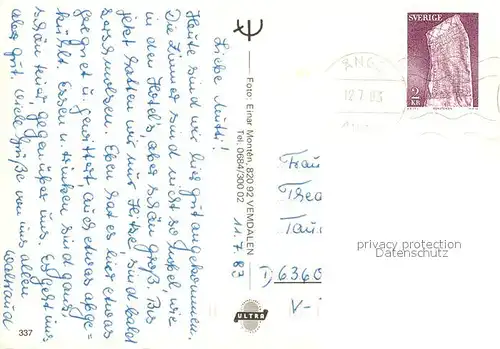 Liebe Mutti!
Heute sind wir hier gut angekommen.
Die Zimmer sind nicht so nobel wie
in den Hotel's, aber schön groß. Bis
jetzt hatten wir nur Hitze sind bald
geschmolzen. Eben hat es hier etwas
geregnet u. gewittert, auch etwas abge=
kühlt. Essen u. trinken sind ganz
schön teuer, gegenüber uns. Es geht uns
aber gut. Viele Grüße von uns allen
Waltraud
11.7.83
Foto: Einar Montén, 820 92 VEMDALEN
Tel. 0684/300 02
ULTRA
337
SVERIGE
2
KR
12.7.83
Frau
Thea
D 6360
V-
privacy protection
Datenschutz